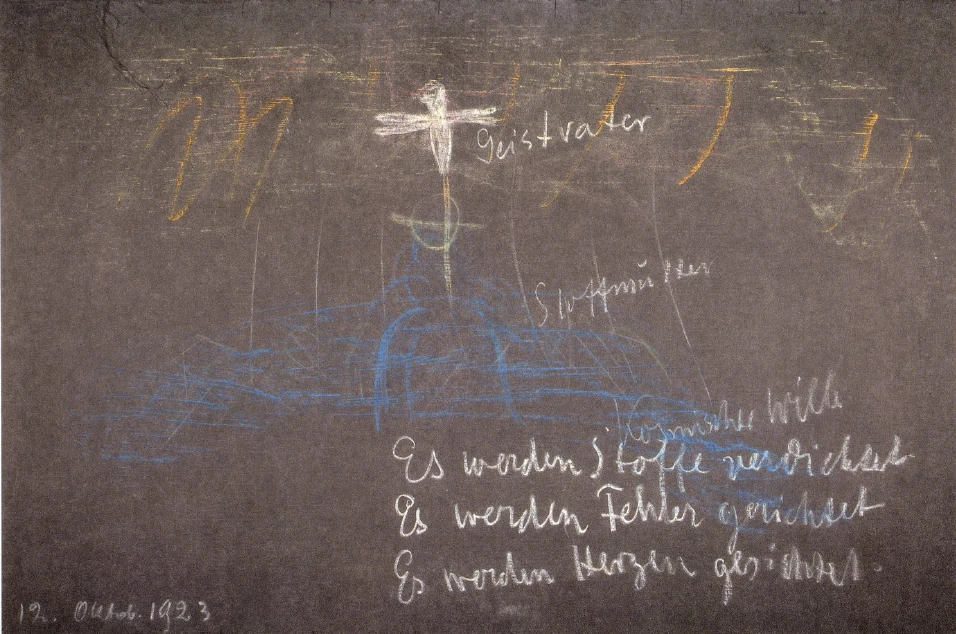 Geistvater
Stoffmutter
Kosmischer Wille
Es werden Stoffe verdichtet.
Es werden Fehler gerichtet
Es werden Herzen gesichtet.
12. Oktob. 1923